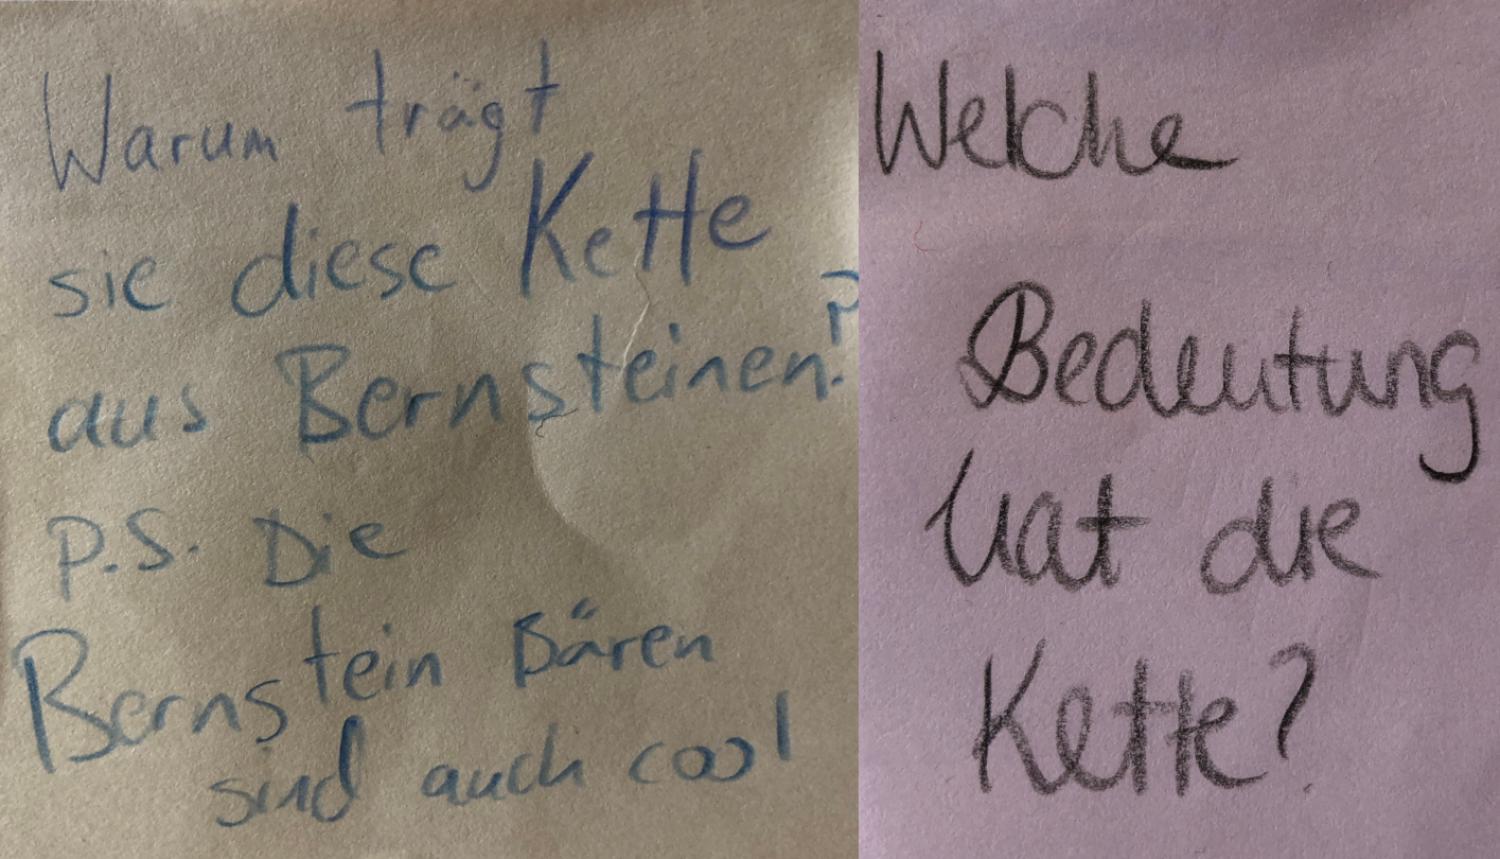 Warum trägt
sie diese Kette
aus Bernsteinen?
P.S. Die
Bernstein Bären
sind auch cool
Welche
Bedeutung
hat die
Kette?